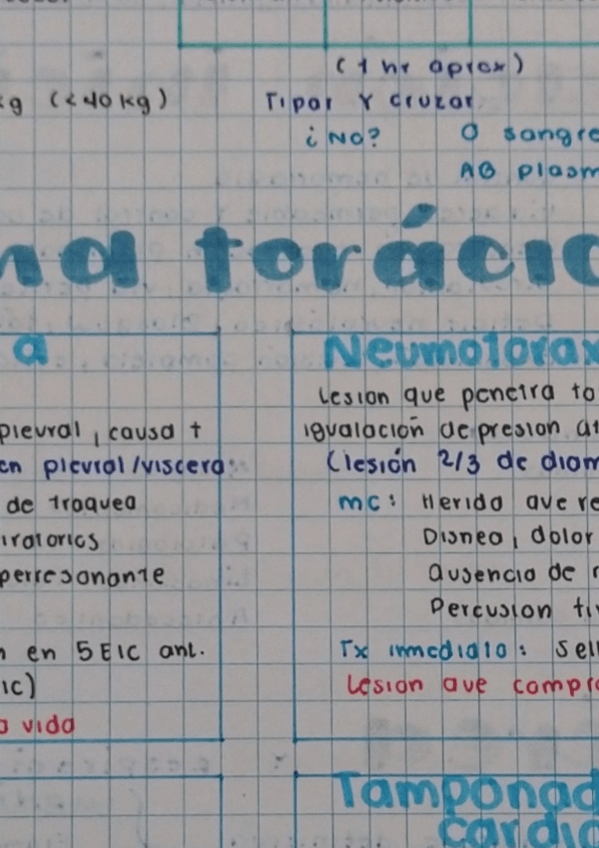 (1 hr aprox)
kg (<40 kg)
Tipar y cruzar
¿No? O sangre
AB plasm
torácic
a
Neumotorax
Lesion que penetra to
pleural, causa ↑
igualación de presion at
en pleural/viscera
(lesión 2/3 de diam
de traquea
mc: Herida que re
iratorios
Disnea, dolor
perresonante
ausencia de r
Percusion ti
n en 5EIC ant.
Tx inmediato: Sell
IC)
Lesion que compro
a vida
Tamponad
cardia